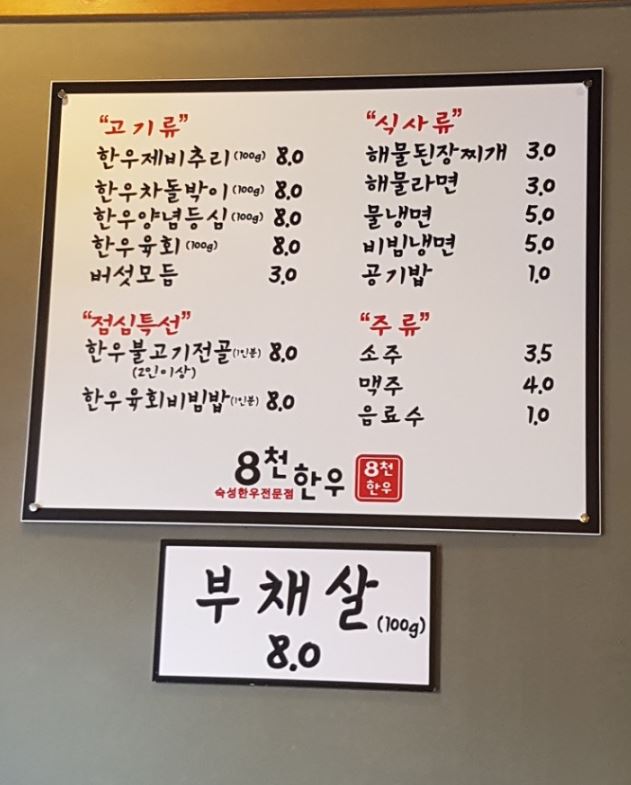 “고기류”
한우제비추리(100g) 8.0
한우차돌박이(100g) 8.0
한우양념등심(100g) 8.0
한우육회(100g) 8.0
버섯모듬 3.0
“점심특선”
한우불고기전골(1인분) 8.0
(2인이상)
한우육회비빔밥(1인분) 8.0
“식사류”
해물된장찌개 3.0
해물라면 3.0
물냉면 5.0
비빔냉면 5.0
공기밥 1.0
“주류”
소주 3.5
맥주 4.0
음료수 1.0
8천한우
숙성한우전문점
8천
한우
부채살(100g)
8.0